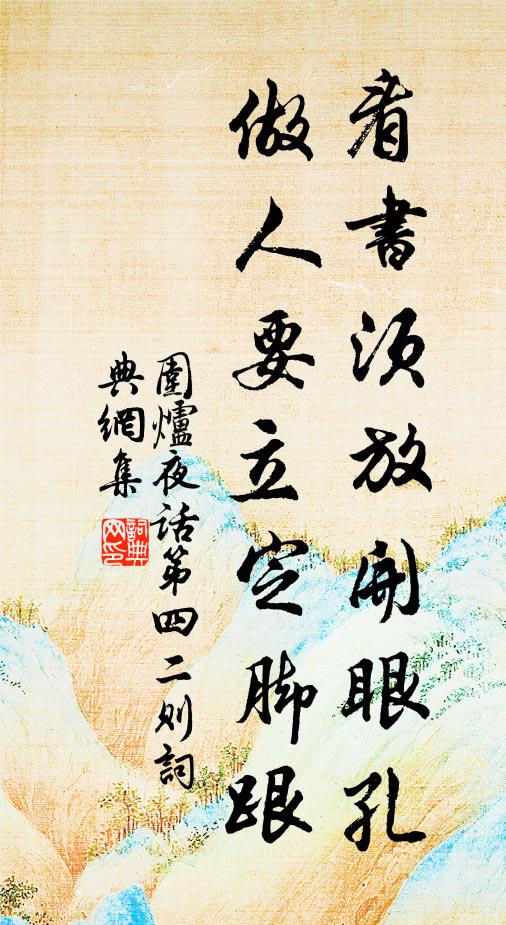 看書須放開眼孔
做人要立定脚跟
圍爐夜话第四二则詞
典網集
詞典
网印